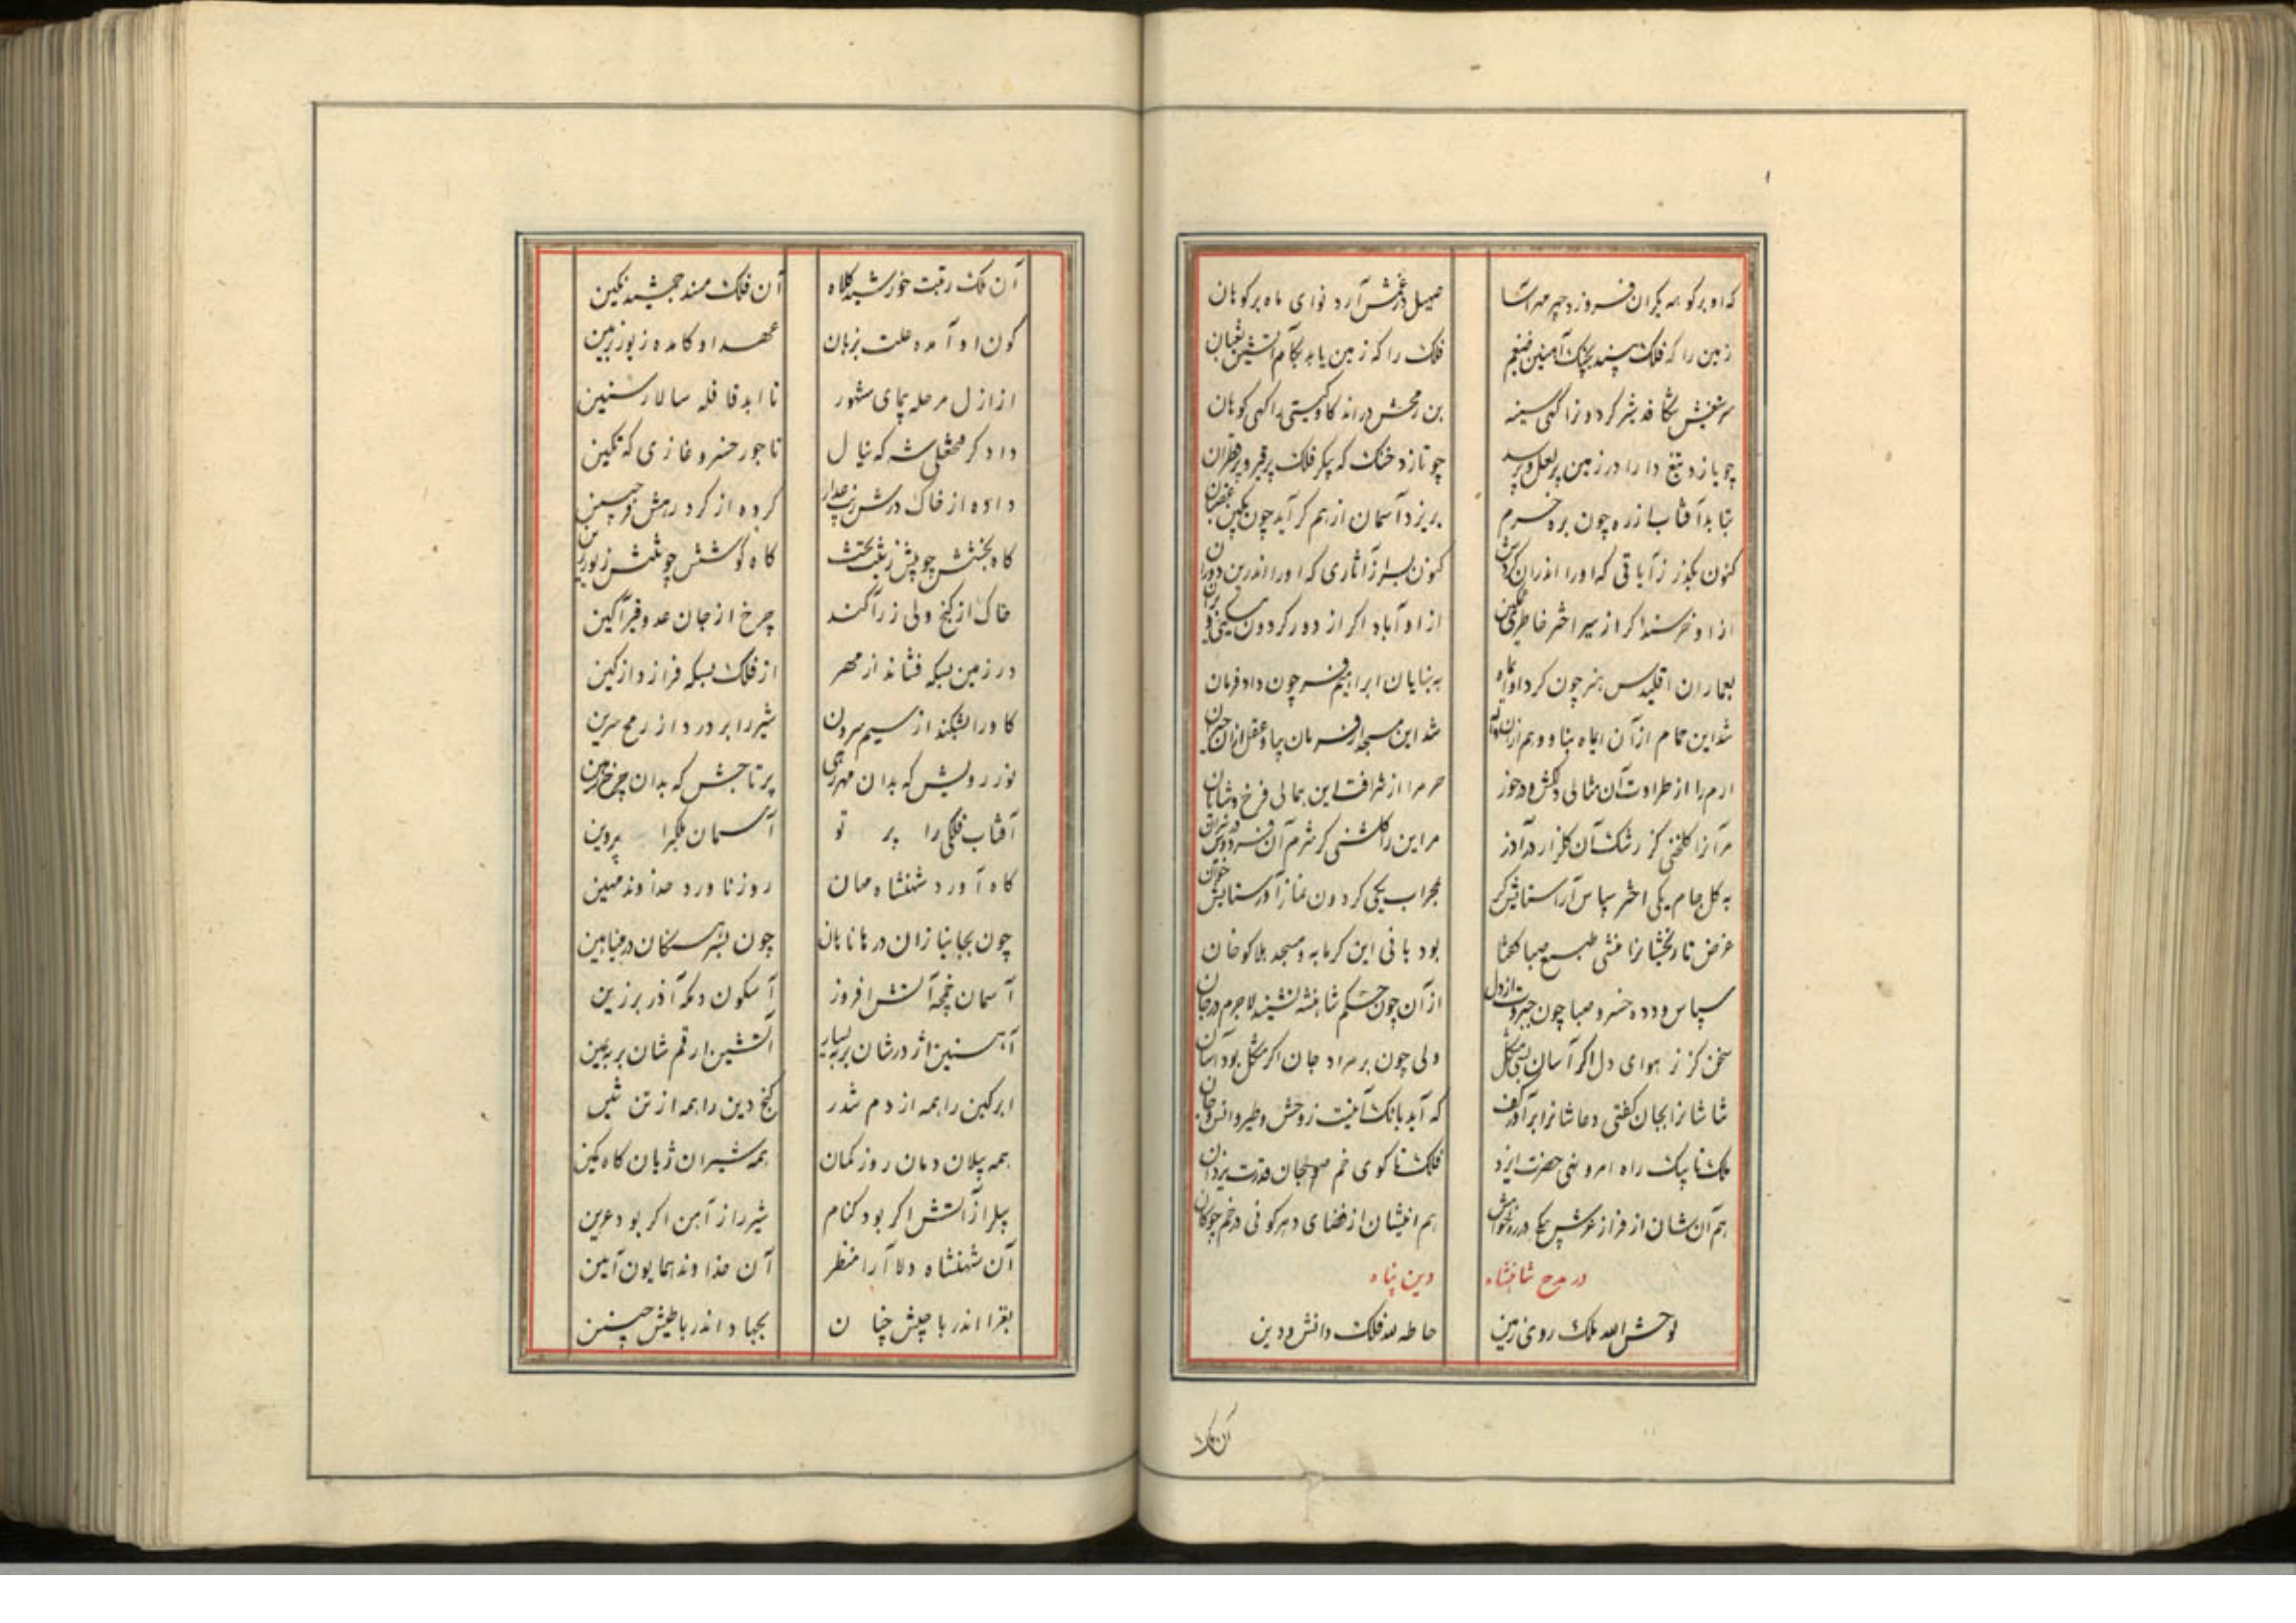 که او بر کوهه یکران فروزد چهر مهرآسا صهیل آرد نوای ماه بر کوهان
زمین را که فلک بیند بچنگ آهنین ضیغم فلک را که زمین یابد بکام آتشین ثعبان
شکافد شیر کردون را کهی سینه بن رمحش دراند کاو کیتی را کهی کوهان
چو یازد تیغ دارا در زمین پر لعل و پر چو تازد خنک که پیکر فلک پر قیر و پر قطران
بتابد آفتاب از زه چون بره خرم بریزد آسمان از هم کر آید چون بکین
کنون بکذر ز آبائی که او را اندران کنون بسرا ز آثاری که او را اندرین دوران
از او خرسند اکر از سیر اختر خاطری غمکین از او آباد اکر از دور کردون
بمعماران اقلیدس هنر چون کرد او ایماه به بنایان ابراهیم فر چون داد فرمان
شد این حمام از آن ایماه بنا و وهم ازان شد این مسجد از فرمان بپا و عقل ازان حیران
ارم را از طراوت آن مثالی دلکش و درخور حرم را از شرافت این همالی فرخ و شایان
مر آنرا کلخنی کز رشک آن کلزار در آذر مر این را کلشنی کز شرم آن فردوس
به کل جام یکی اختر سپاس آرا ستایش کر بمحراب یکی کردون نماز آور ستایش خوان
غرض تاریخشانرا منشی طبع صبا کفتا بود بانی این کرمابه و مسجد هلاکو خان
سپاس و ده خسرو صبا چون از دل از آن چون حکم شاهنشه نشیند لاجرم در جان
سخن کز ز هوای دل اکر آسان بسی مشکل ولی چون بر مراد جان اکر مشکل بود آسان
ثناشانرا بجان کفتی دعاشانرا برآور کف که آید بانک آمین ز وحش و طیر و انس و جان
ملک تا پیک راه امر و نهی حضرت ایزد فلک تا کوی خم صولجان قدرت یزدان
هم آن شان از فراز عرش پیکی در ره هم اینشان از فضای دهر کوئی در خم چوکان
در مدح شاهنشاه دین پناه
لوحش الله ملک روی زمین حاطه لله فلک دانش و دین
آن ملک
آن ملک رتبت خورشید کلاه آن فلک مسند جمشید نکین
کون او آمده علت بزمان عهد او کامده زیور بزمین
از ازل مرحله پیمای شهور تا ابد قافله سالار سنین
دادکر فتحعلی شه که نیال تاجور خسرو غازی که تکین
داده از خاک درش زیب کرده از کرد رهش فر جبین
کاه بخشش چو پشت کاه کوشش چو
خاک از کنج ولی زر آکند چرخ از جان عدو قیرآکین
در زمین بسکه فشاند از مهر از فلک بسکه فرازد از کین
کاو را بشکند از سیم سرون شیر را بر درد از رمح سرین
نور رویش که بدان مهر رهی پر تاجش که بدان چرخ رهین
آفتاب فلکی را پرتو آسمان ملکرا پروین
کاه آورد شهنشاه مهان روز ناورد خداوند مهین
چون بجا بنیازان در هامان چون بشیر سکان در
آسمان غنچه آتش افروز آبسکون دمکه آذر برزین
آهنین اژدرشان بر بیسار آتشین ارقم شان بر بیمین
ابر کین را همه از دم تندر کنج دین را همه از تن تنین
همه پیلان دمان روز کمان همه شیران ژیان کاه کمین
پیل را ز آتش اکر بود کنام شیر را ز آهن اکر بود عرین
آن شهنشاه دلارا منظر آن خداوند همایون آیین
بغزا اندر با جیش چنان بجهاد اندر با طیش چنین